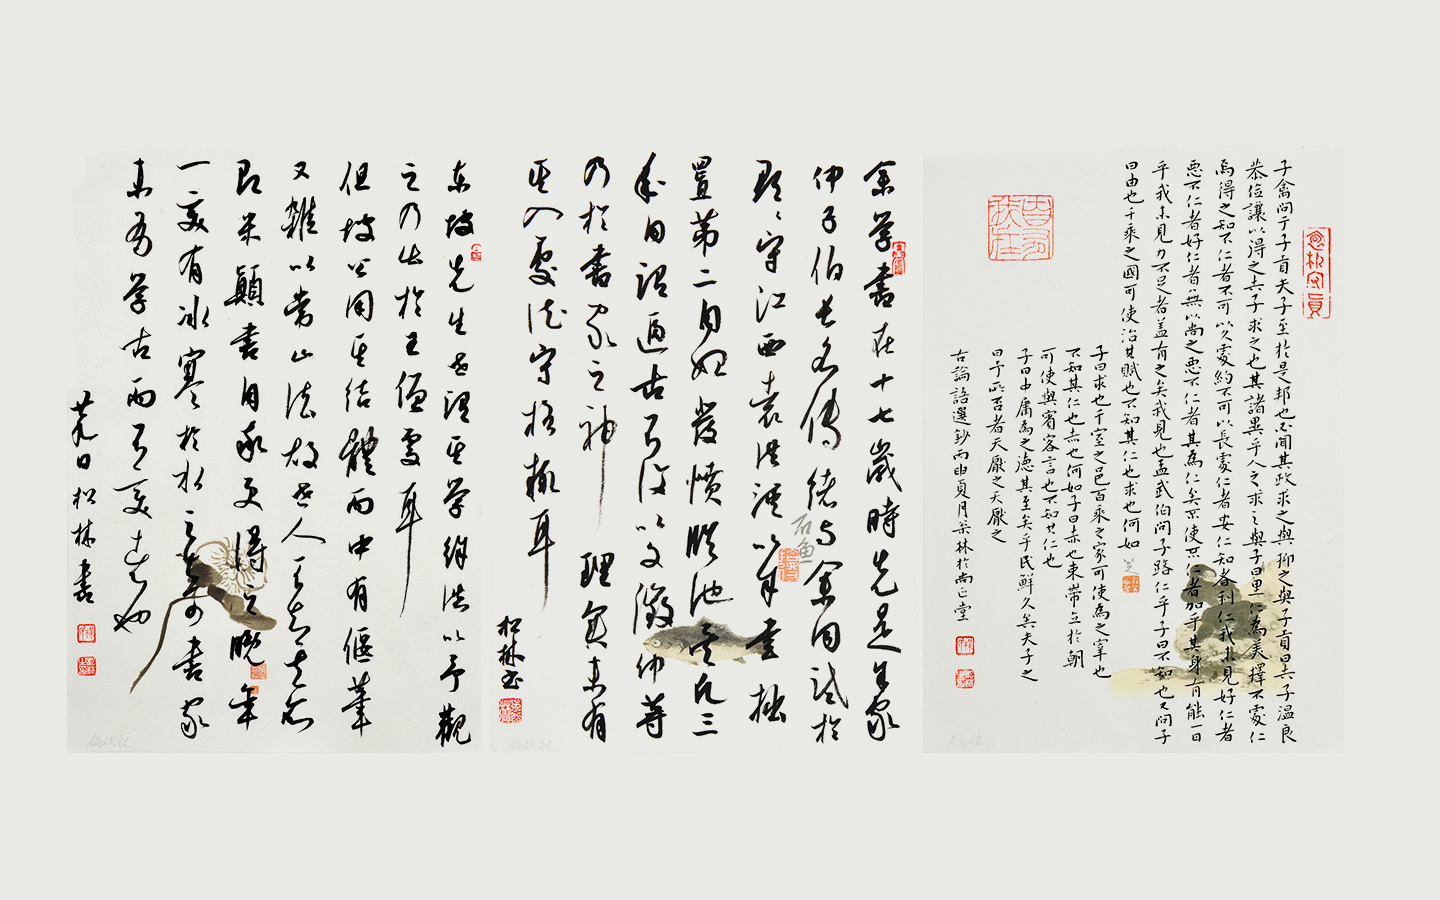 子禽问于子貢夫子至於是邦也必聞其政求之與抑之與子貢曰夫子温良
恭儉讓以得之夫子求之也其諸異乎人之求之與子曰里仁為美擇不處仁
焉得之知不仁者不可以久處約不可以長處仁者安仁知者利仁我未見好仁者
惡不仁者好仁者無以尚之惡不仁者其為仁矣不使不仁者加乎其身有能一日
乎我未見力不足者盖有之矣我見也孟武伯问子路仁乎子曰不知也又问子
曰由也千乘之國可使治其賦也不知其仁也求也何如
子曰求也千室之邑百乘之家可使為之宰也
不知其仁也赤也何如子曰赤也束帶立於朝
可使與賓客言也不知其仁也
子曰中庸為之德其至矣乎民鮮久矣夫子之
曰予所否者天厭之天厭之
古論語選鈔丙申夏月林於尚正堂
余學書在十七歲時先是吾家
仲子伯長名傳緒与余同試於
郡郡守江西袁洪溪以余書拙
置第二自此發憤臨池矣凡三
年自謂逼古不復以文徵仲等
乃於書家之神理實未有
其入處徒守格轍耳
松林書
石魚
東坡先生世謂其學徐浩以予觀
之乃出於王僧虔耳
但坡公用其結體而中有偃筆
又雜以常山法故世人不知其所
即米顛書自率更得之晚年
一變有冰寒於水之奇書家
未有學古而不變者也
廿九日松林書